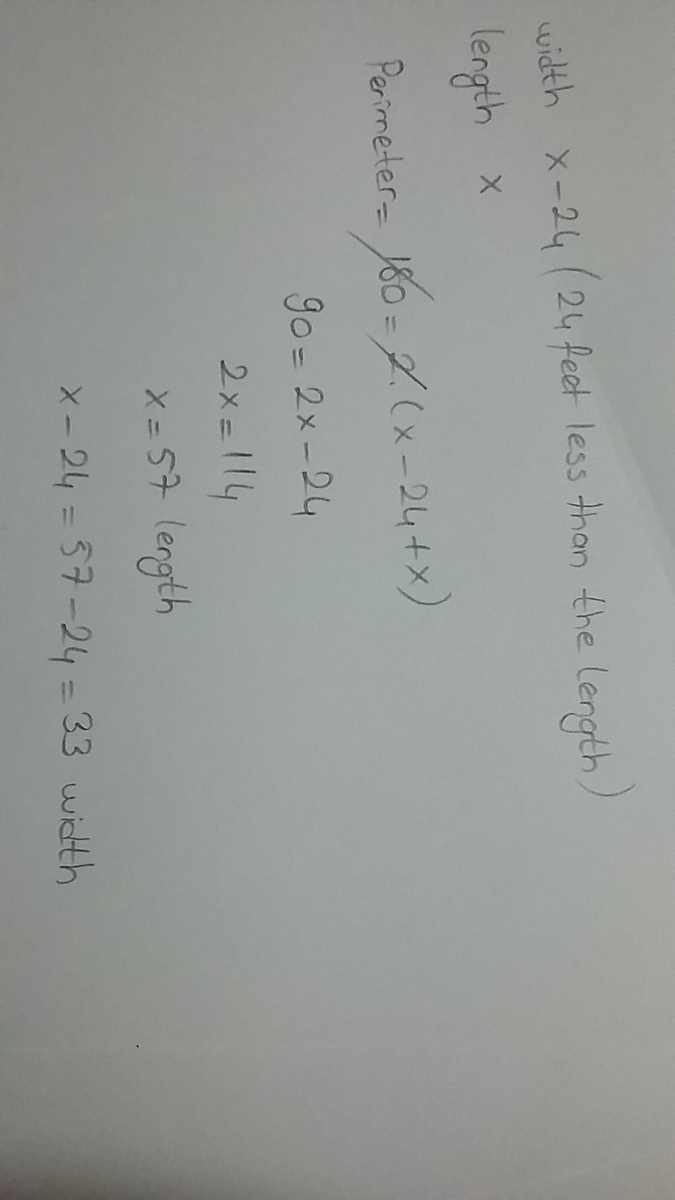 width x-24 (24 feet less than the length)
length x
Perimeter = 180 = 2.(x-24+x)
90 = 2x-24
2x = 114
x = 57 length
x-24 = 57-24 = 33 width